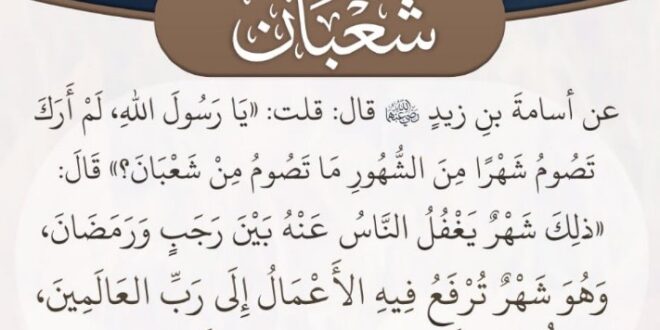 شَعْبَان
عن أسامةَ بنِ زيدٍ رضي الله عنهما قال: قلت: «يَا رَسُولَ اللهِ، لَمْ أَرَكَ
تَصُومُ شَهْرًا مِنَ الشُّهُورِ مَا تَصُومُ مِنْ شَعْبَانَ؟» قَالَ:
«ذلِكَ شَهْرٌ يَغْفُلُ النَّاسُ عَنْهُ بَيْنَ رَجَبٍ وَرَمَضَانَ،
وَهُوَ شَهْرٌ تُرْفَعُ فِيهِ الأَعْمَالُ إِلَى رَبِّ العَالَمِينَ،